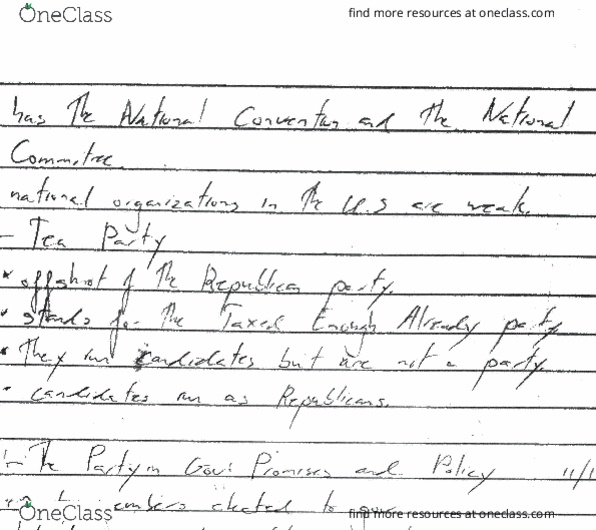 OneClass find more resources at oneclass.com
has The National Convention and The National
Committee
national organizations in The U.S are weak.
- Tea Party
* offshoot of The Republican party.
* stands for The Taxed Enough Already party
* They run candidates but are not a party
* candidates run as Republicans.
- The Party in Gov: Promises and Policy 11/1
members elected to
OneClass find more resources at oneclass.com